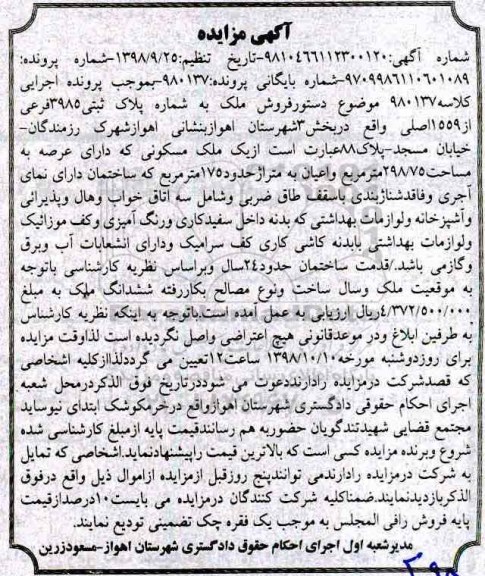 آگهی مزایده
شماره آگهی:۹۸۱۰۴۶۶۱۱۲۳۰۰۱۲۰-تاریخ تنظیم:۱۳۹۸/۹/۲۵-شماره پرونده:
۹۷۰۹۹۸۶۱۱۰۶۰۱۰۸۹-شماره بایگانی پرونده:۹۸۰۱۳۷-بموجب پرونده اجرایی
کلاسه۹۸۰۱۳۷ موضوع دستورفروش ملک به شماره پلاک ثبتی۳۹۸۵فرعی
از۱۵۵۹اصلی واقع دربخش۳شهرستان اهوازبنشانی اهوازشهرک رزمندگان-
خیابان مسجد-پلاک۸۸عبارت است ازیک ملک مسکونی که دارای عرصه به
مساحت۲۹۸/۷۵مترمربع واعیان به متراژحدود۱۷۵مترمربع که ساختمان دارای نمای
آجری وفاقدشناژبندی باسقف طاق ضربی وشامل سه اتاق خواب وهال وپذیرائی
وآشپزخانه ولوازمات بهداشتی که بدنه داخل سفیدکاری ورنگ آمیزی وکف موزائیک
ولوازمات بهداشتی بابدنه کاشی کاری کف سرامیک ودارای انشعابات آب وبرق
وگازمی باشد./قدمت ساختمان حدود۲۴سال وبراساس نظریه کارشناسی باتوجه
به موقعیت ملک وسال ساخت ونوع مصالح بکاررفته ششدانگ ملک به مبلغ
۴/۳۷۲/۵۰۰/۰۰۰ریال ارزیابی به عمل آمده است.باتوجه به اینکه نظریه کارشناس
به طرفین ابلاغ ودر موعدقانونی هیچ اعتراضی واصل نگردیده است لذاوقت مزایده
برای روزدوشنبه مورخه۱۳۹۸/۱۰/۱۰ ساعت۱۲تعیین می گرددلذاازکلیه اشخاصی
که قصدشرکت درمزایده رادارنددعوت می شوددرتاریخ فوق الذکردرمحل شعبه
اجرای احکام حقوقی دادگستری شهرستان اهوازواقع درخرمکوشک ابتدای نیوساید
مجتمع قضایی شهیدتندگویان حضوربه هم رسانندقیمت پایه ازمبلغ کارشناسی شده
شروع وبرنده مزایده کسی است که بالاترین قیمت راپیشنهادنماید.اشخاصی که تمایل
به شرکت درمزایده رادارندمی توانندپنج روزقبل ازمزایده ازاموال ذیل واقع درفوق
الذکربازدیدنمایند.ضمناکلیه شرکت کنندگان درمزایده می بایست۱۰درصدازقیمت
پایه فروش رافی المجلس به موجب یک فقره چک تضمینی تودیع نمایند.
مدیرشعبه اول اجرای احکام حقوق دادگستری شهرستان اهواز-مسعودزرین